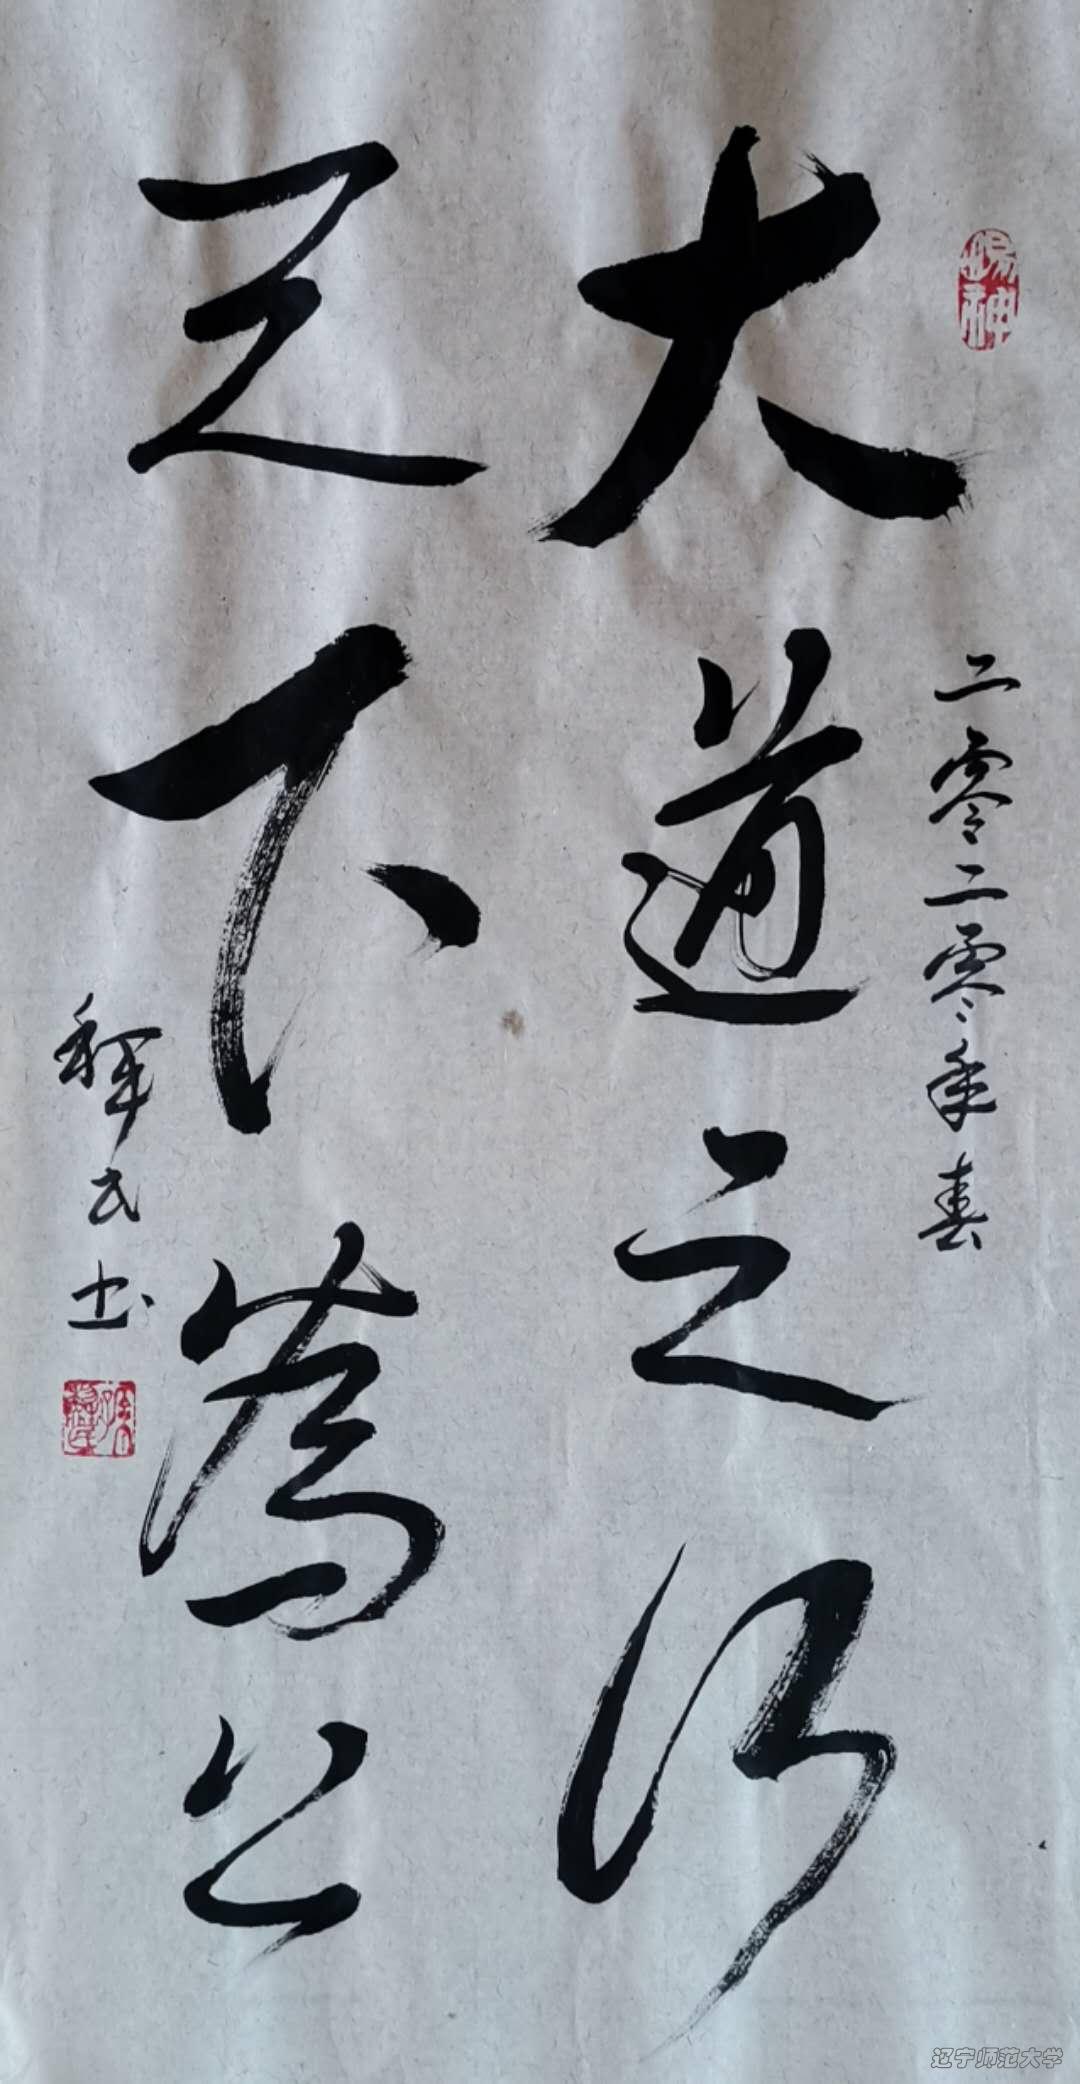 二零二零年春
大道之行
天下为公
民书
辽宁师范大学